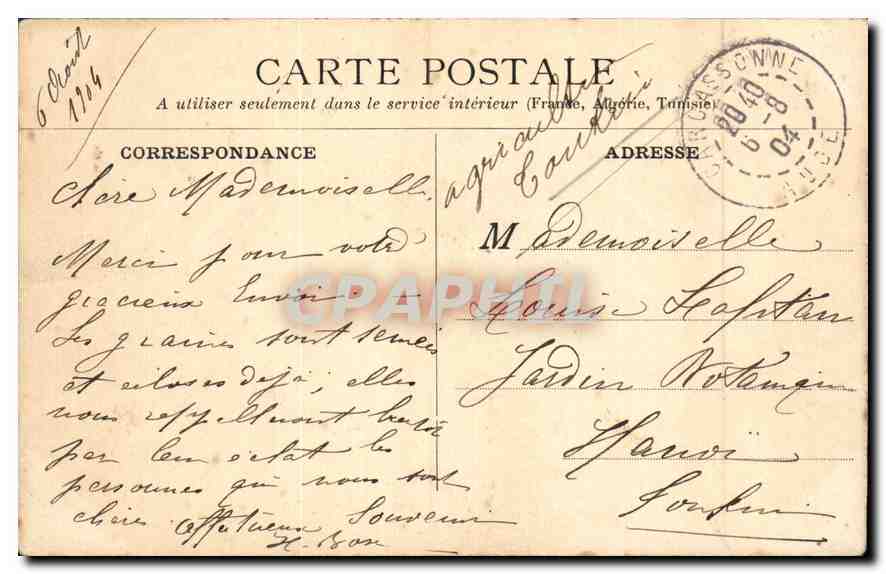 6 Août
1904
CARTE POSTALE
A utiliser seulement dans le service intérieur (France, Algérie, Tunisie)
agriculture
Tonkin
CARCASSONNE
20 40
6 - 8
04
AUDE
CORRESPONDANCE
Chère Mademoiselle,
Merci pour votre
gracieux Envoi. —
Les graines sont semées
et écloses déjà, elles
nous rappelleront bientôt
par leur éclat les
personnes qui nous sont
chères affectueux Souvenir
ADRESSE
Mademoiselle
Louise Lafitan
Jardin Botanique
Hanoï
Tonkin
CPAPHIL